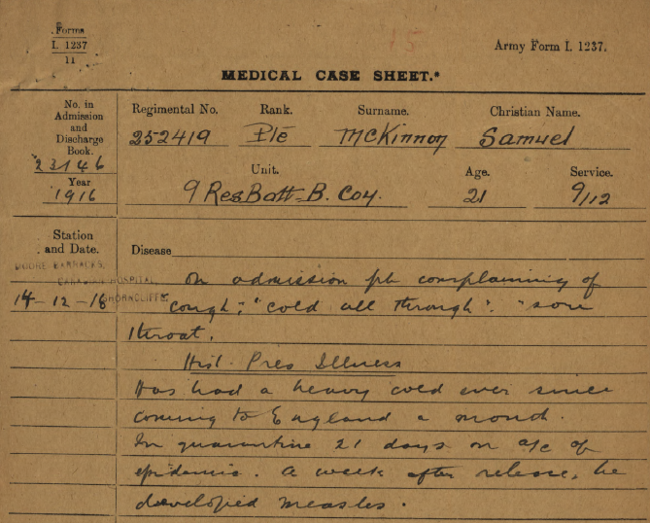 Forms
I. 1237
11
15
Army Form I. 1237.
MEDICAL CASE SHEET.*
No. in Admission and Discharge Book.
23146
Year
1916
Regimental No. Rank. Surname. Christian Name.
252419 Pte McKinnon Samuel
Unit. Age. Service.
9 Res Batt - B. Coy. 21 9/12
Station and Date.
MOORE BARRACKS,
CANADIAN HOSPITAL
SHORNCLIFFE
14-12-16
Disease
On admission pt complaining of
"cough", "cold all through". "sore
throat.
Hist. Pres Illness
Has had a heavy cold ever since
coming to England a month.
In quarantine 21 days on a/c of
epidemic. A week after release, he
developed measles.